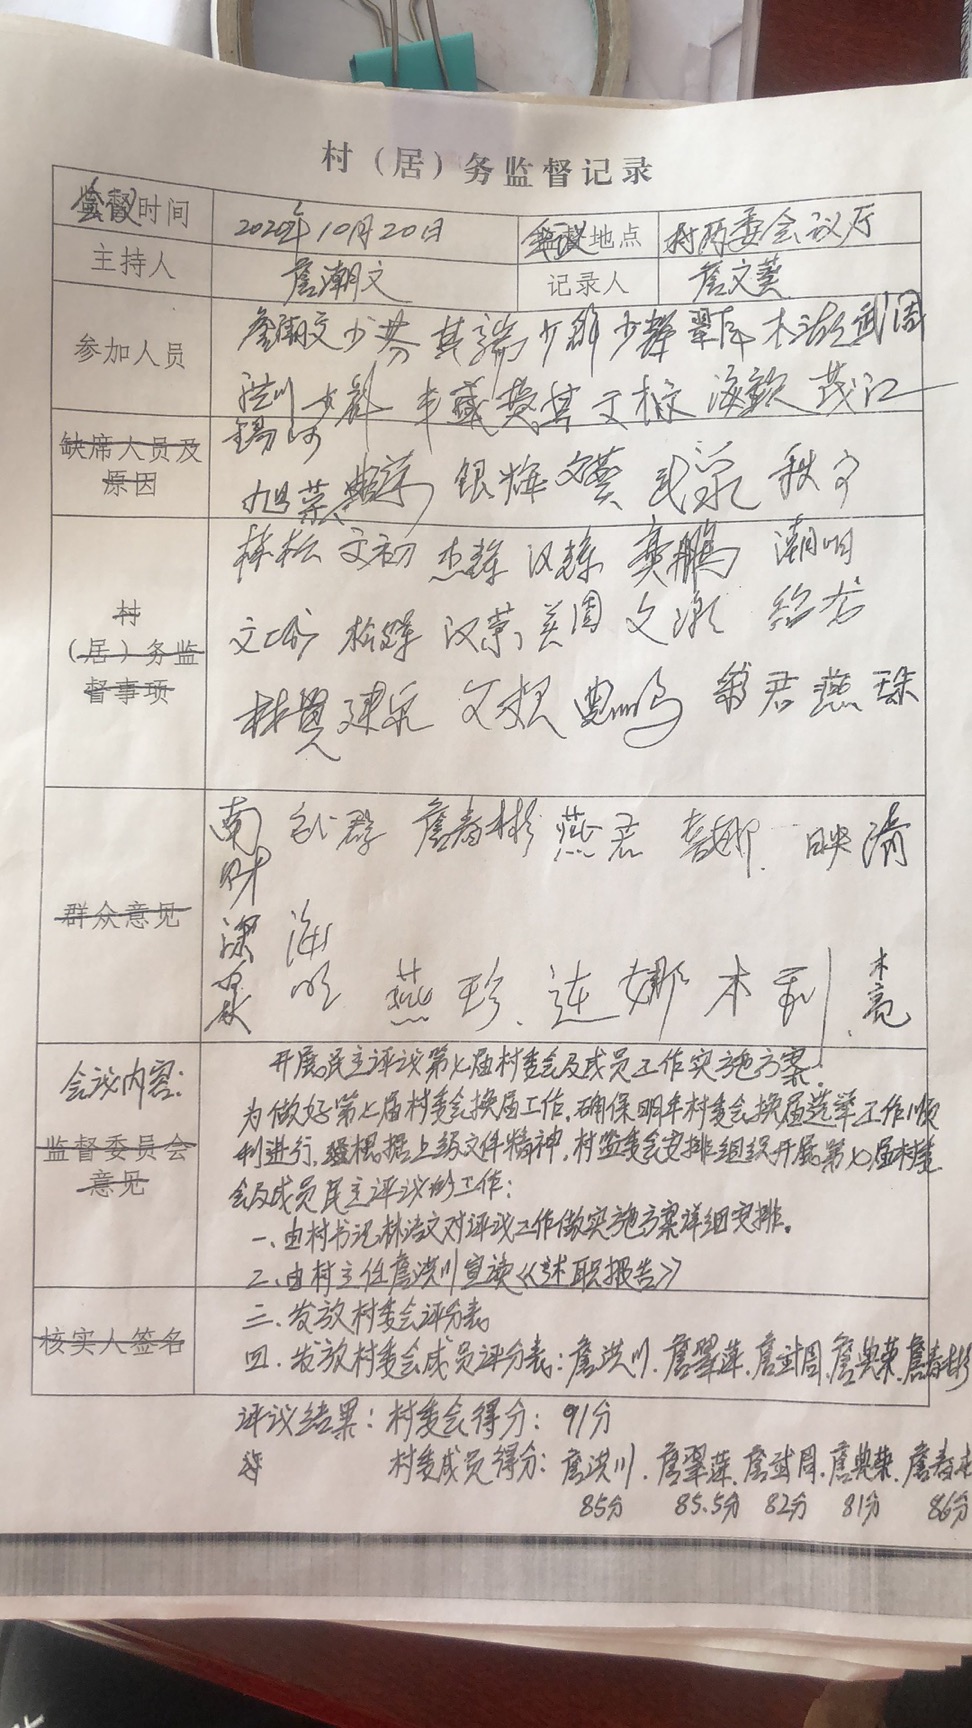 村（居）务监督记录
会议时间 2020年10月20日 会议地点 村两委会议厅
主持人 詹潮文 记录人 詹文葵
参加人员
詹潮文 少芬 其瑞 少群 少静 翠萍 木浩 武周
洪川 文彬 海歆 茂江
缺席人员及
原因
锡河
旭荣 银梅 文葵 武泉 秋文
村
（居）务监
督事项
林松 文初 杰辉 汉辉 奕鹏 潮明
松辉 汉荣 美国
林贤 建泉 典鸣 翁君 燕珠
群众意见
南财 詹春彬 燕君 喜娜 映清
海明 燕珍 连娜 木利 木亮
会议内容：
监督委员会
意见
开展民主评议第七届村委会及成员工作实施方案.
为做好第七届村委会换届工作，确保明年村委会换届选举工作顺
利进行，根据上级文件精神，村监委会安排组织开展第七届村委
会及成员民主评议的工作：
一、由村书记林洁文对评议工作做实施方案详细安排。
二、由村主任詹洪川宣读《述职报告》
核实人签名
三、发放村委会评分表
四、发放村委会成员评分表：詹洪川、詹翠萍、詹武周、詹典荣、詹春彬
评议结果：村委会得分：91分
村委成员得分：詹洪川、詹翠萍、詹武周、詹典荣、詹春
85分 85.5分 82分 81分 86分